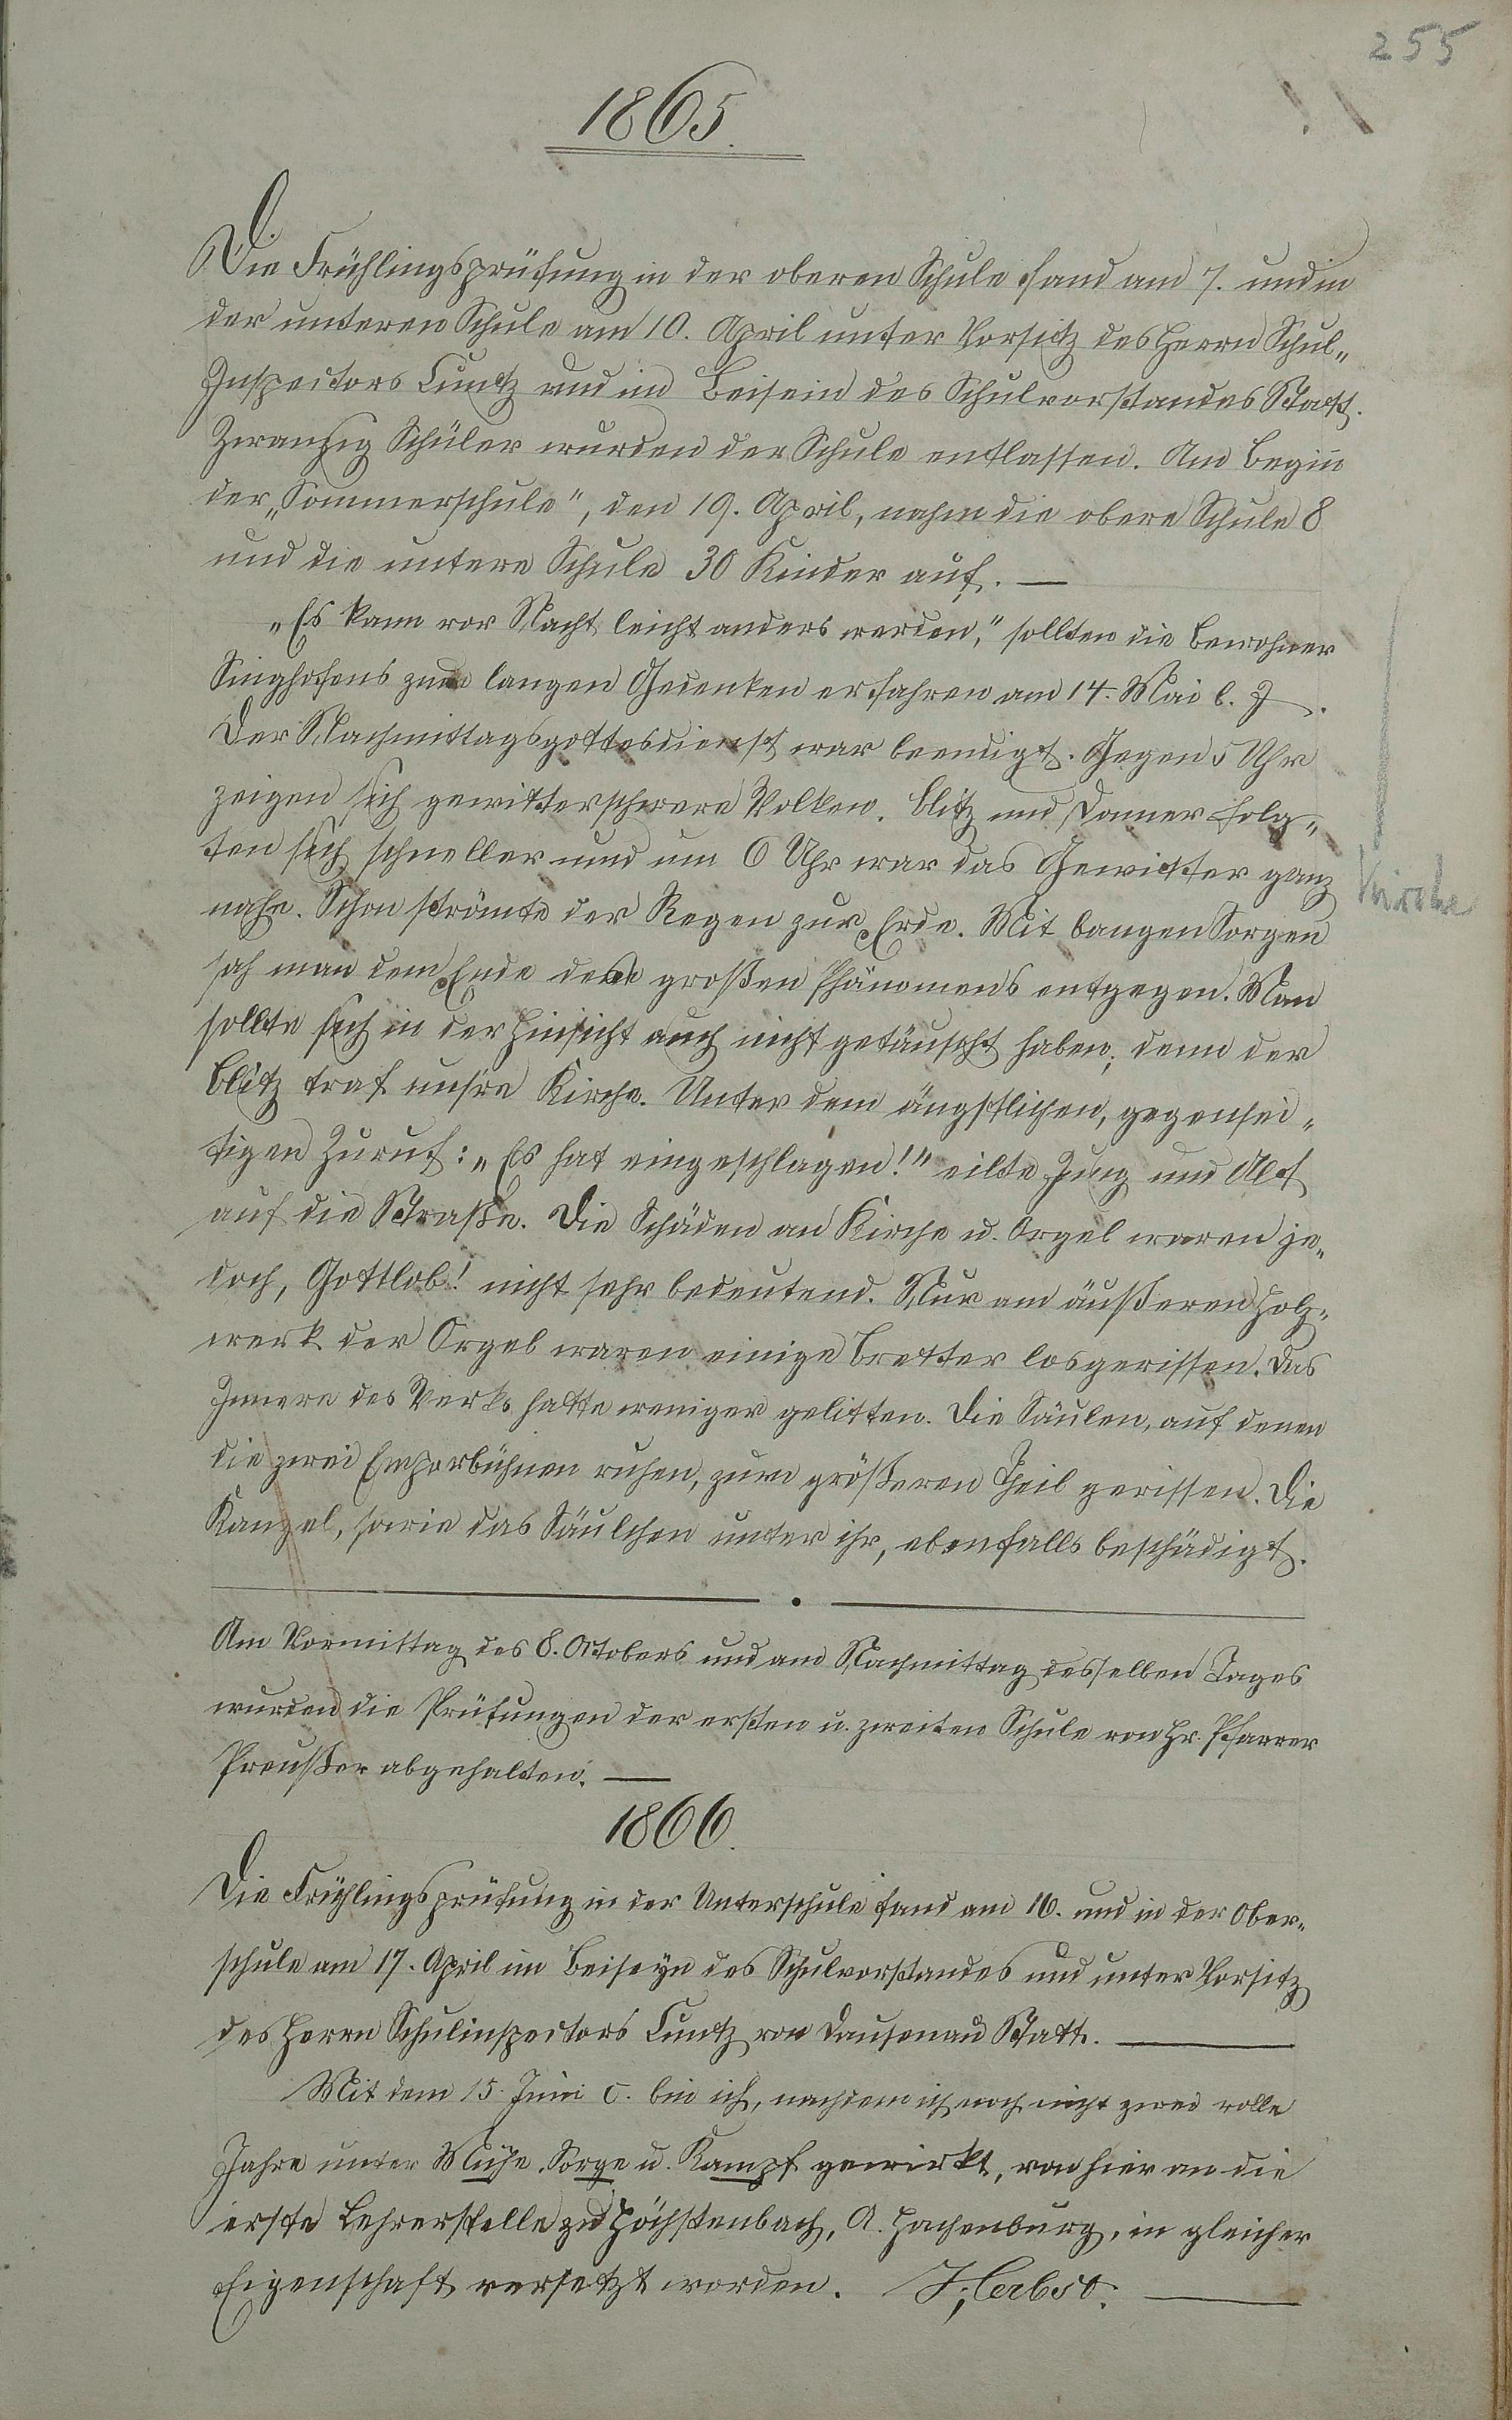 255
1865.
Die Frühlingsprüfung in der oberen Schule fand am 7. und in
der unteren Schule am 10. April unter Vorsitz des Herrn Schul-
Inspectors Cuntz und im Beisein des Schulvorstandes Statt.
Zwanzig Schüler wurden der Schule entlassen. Am Begiñ
der „Sommerschule", den 19. April, nahm die obere Schule 8
und die untere Schule 30 Kinder auf. —
„Es kann vor Nacht leicht anders werden," sollten die Bewohner
Singhofens zum langen Gedenken erfahren am 14. Mai l. J.
Der Nachmittagsgottesdienst war beendigt. Gegen 5 Uhr
zeigen sich gewitterschwere Wolken. Blitz und Donner folg-
ten sich schneller und um 6 Uhr war das Gewitter ganz
Kirche
nahe. Schon strömte der Regen zur Erde. Mit bangen Sorgen
sah man dem Ende des großen Phänomens entgegen. Man
sollte sich in der Hinsicht auch nicht getäuscht haben; denn der
Blitz traf unsre Kirche. Unter dem ängstlichen, gegensei-
tigen Zuruf: „Es hat eingeschlagen!" eilte Jung und Alt
auf die Straße. Die Schäden an Kirche u. Orgel waren je-
doch, Gottlob! nicht sehr bedeutend. Nur am äußeren Holz-
werk der Orgel waren einige Bretter losgerissen. Das
Innere des Werks hatte weniger gelitten. Die Säulen, auf denen
die zwei Emporbühnen ruhen, zum größeren Theil gerissen. Die
Kanzel, sowie das Säulchen unter ihr, ebenfalls beschädigt.
Am Vormittag des 8. Octobers und am Nachmittag desselben Tages
wurden die Prüfungen der ersten u. zweiten Schule von Hr. Pfarrer
Preußer abgehalten. —
1866.
Die Frühlingsprüfung in der Unterschule fand am 16. und in der Ober-
schule am 17. April im Beiseyn des Schulvorstandes und unter Vorsitz
des Herrn Schulinspectors Cuntz von Dausenau Statt. —
Mit dem 15. Juni c. bin ich, nachdem ich noch nicht zwei volle
Jahre unter Mühe, Sorge u. Kampf gewirkt, von hier an die
erste Lehrerstelle zu Höchstenbach, A. Hachenburg, in gleicher
Eigenschaft versetzt worden. Herbst. —